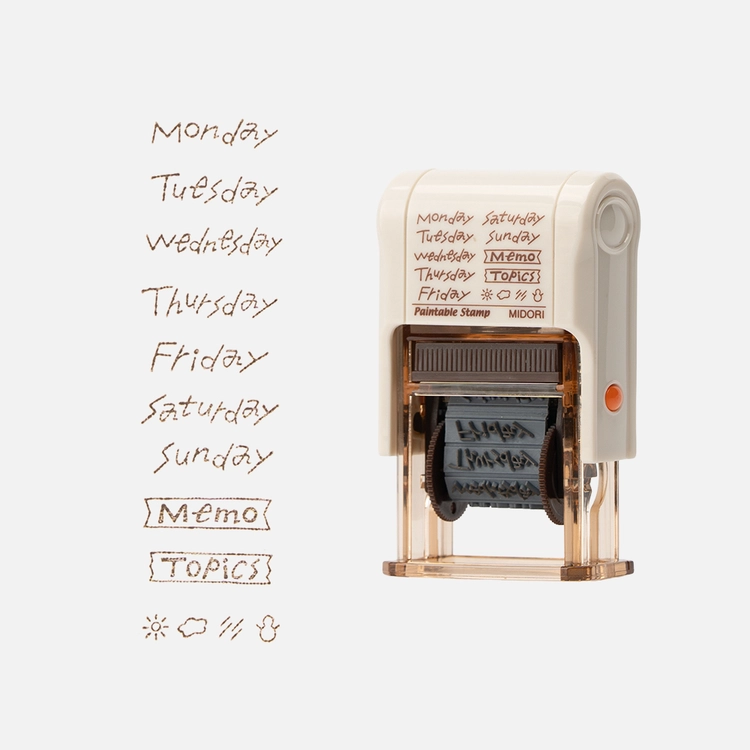 Monday
Tuesday
Wednesday
Thursday
Friday
Saturday
Sunday
Memo
TOPICS
Monday Saturday
Tuesday Sunday
Wednesday Memo
Thursday TOPICS
Friday
Paintable Stamp MIDORI
Friday
Thursday